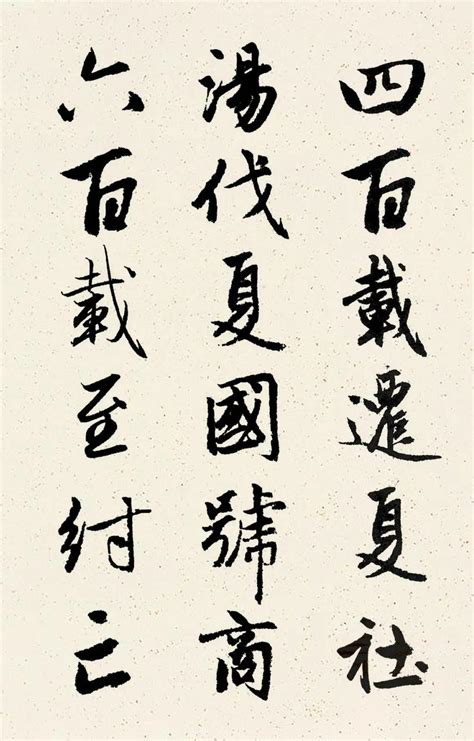 四百載遷夏社
湯伐夏國號商
六百載至紂亡